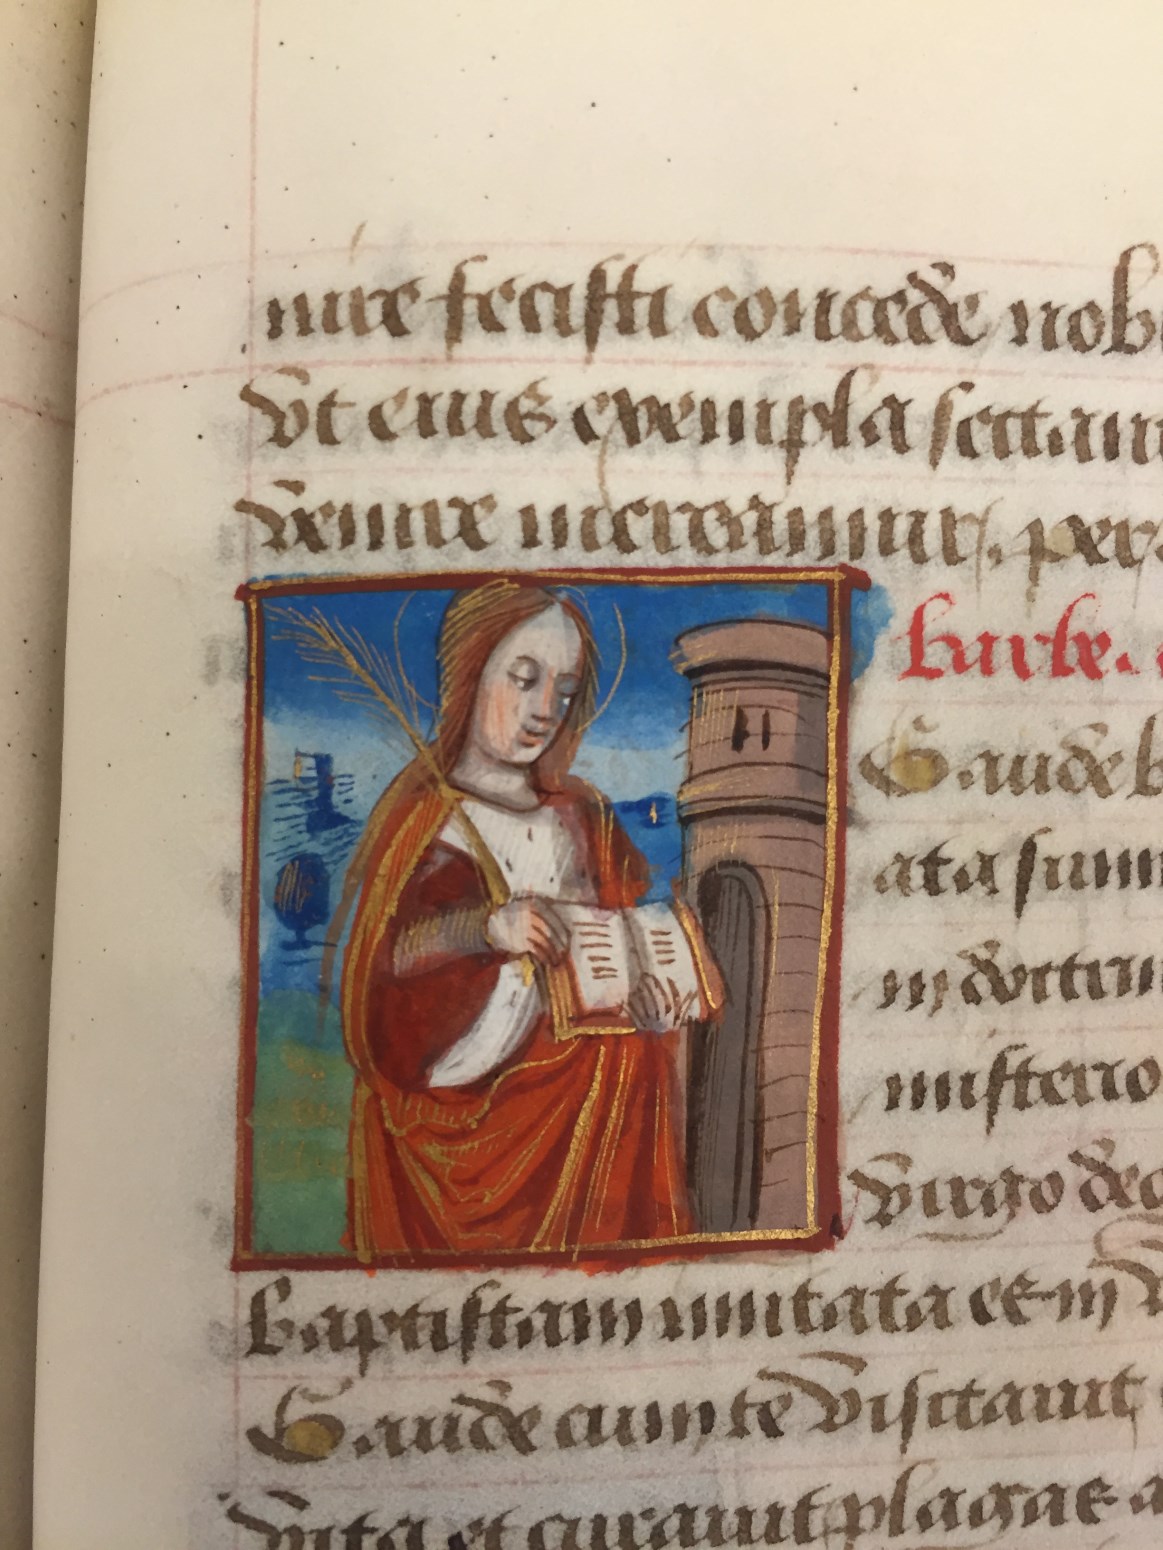 nire fecisti concede nob
Vt eius exempla sectant
venire mereamur, per
barbe.
Gaude b
ata sum
in doctrin
misterio
Virgo de
baptistam imitata et in
Gaude cum te visitavit
vita et curavit plagas a